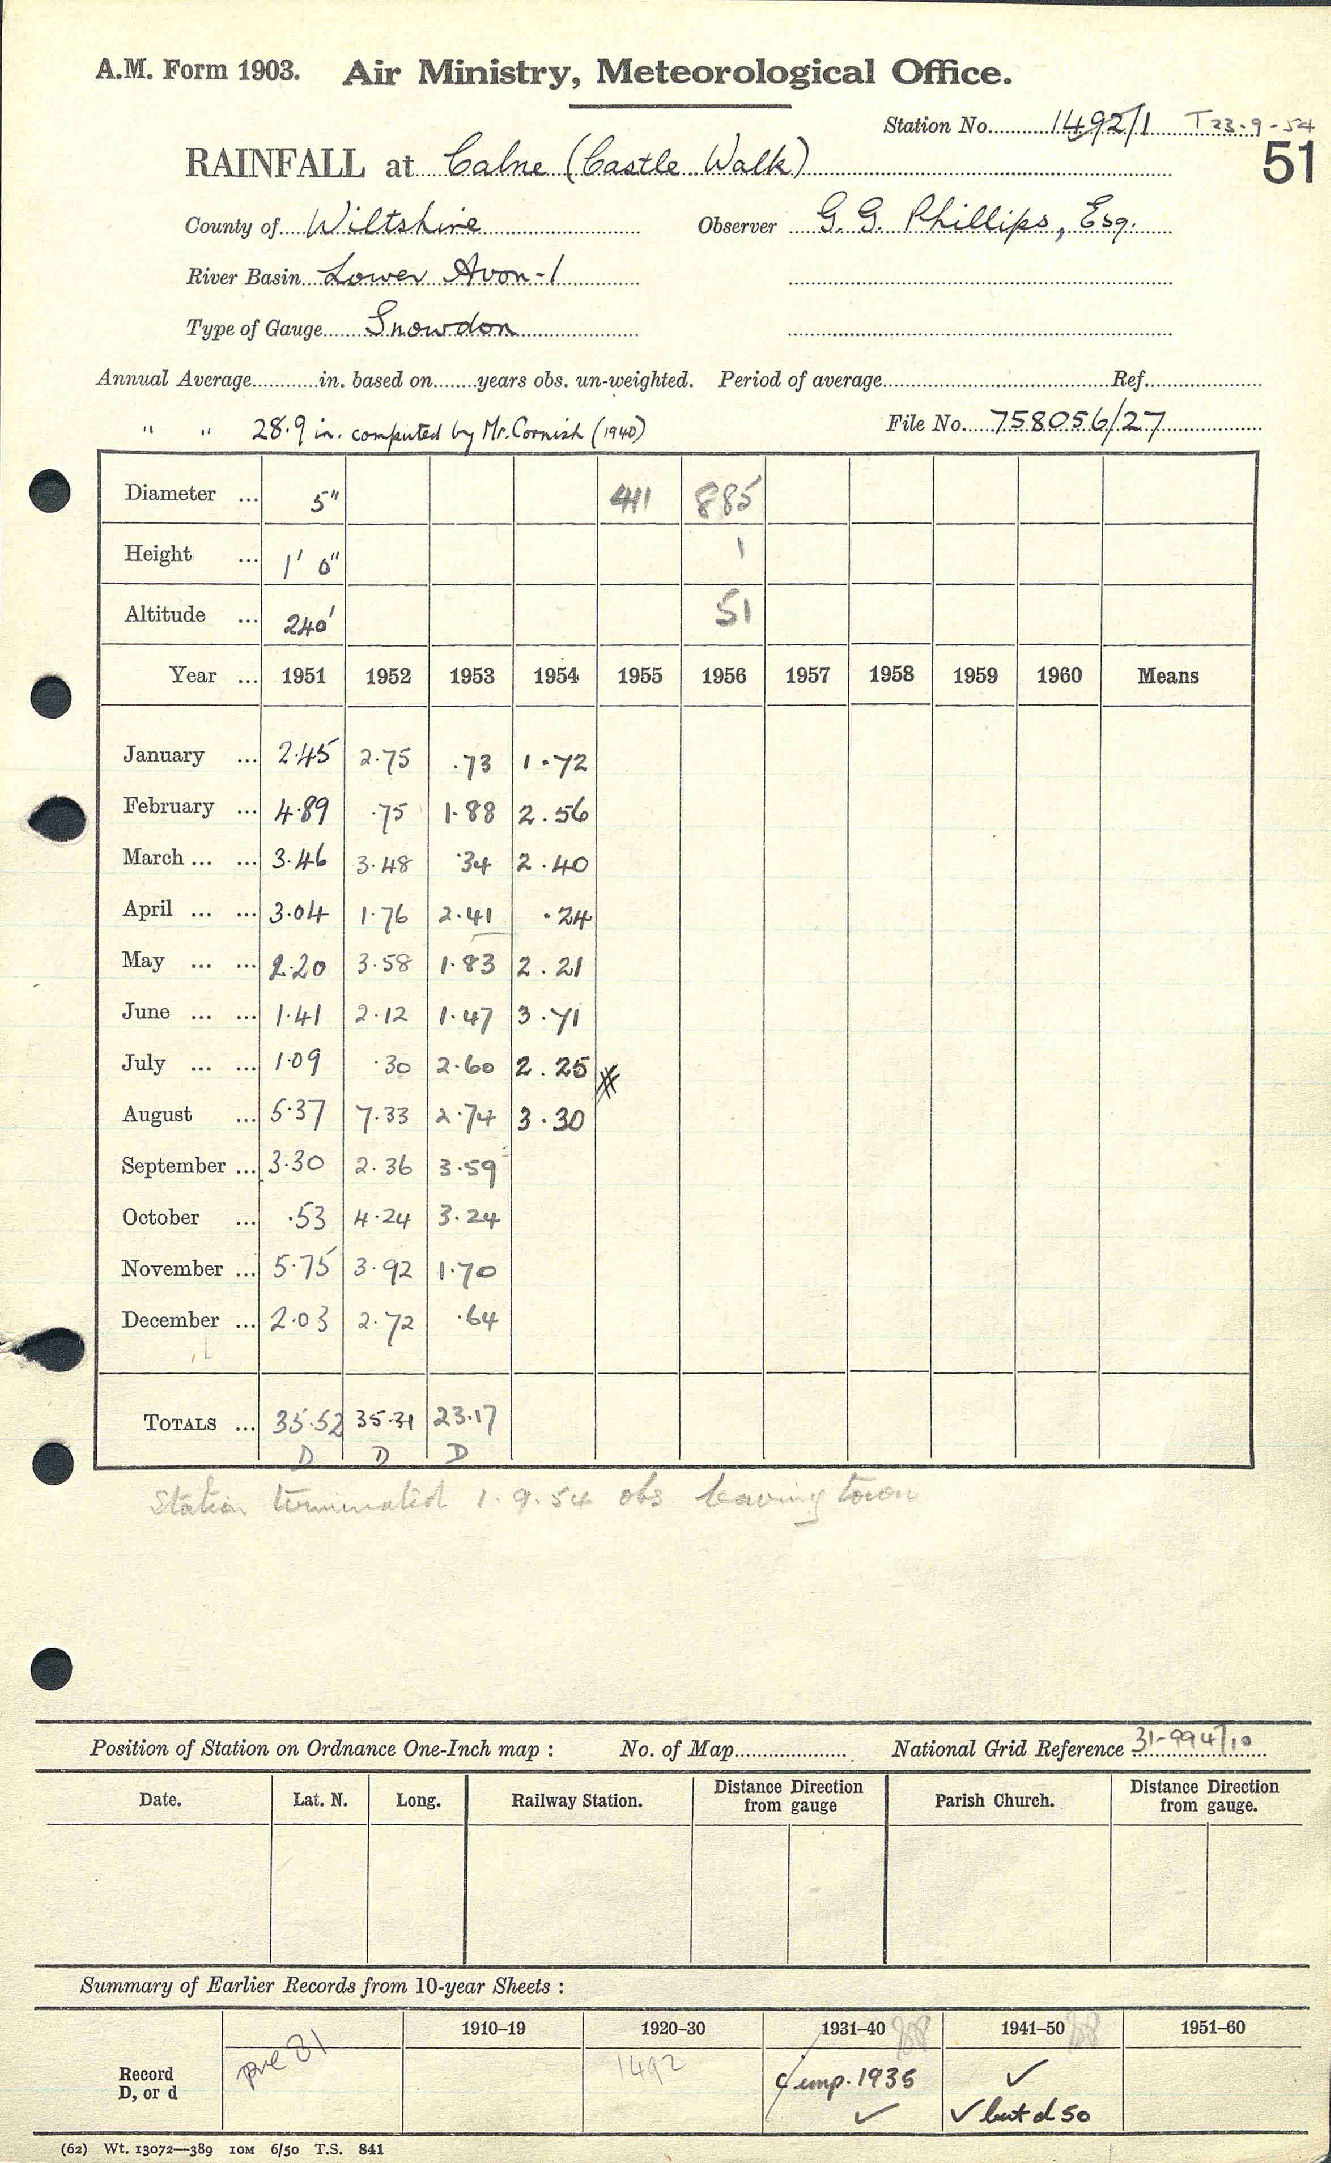 A.M. Form 1903. Air Ministry, Meteorological Office.
Station No. 1492/1 T 23.9-54
51
RAINFALL at Calne (Castle Walk)
County of Wiltshire Observer G. G. Phillips, Esq.
River Basin Lower Avon-1
Type of Gauge Snowdon
Annual Average in. based on years obs. un-weighted. Period of average Ref.
" " 28.9 in. computed by Mr. Cornish (1940) File No. 758056/27
Diameter ... 5" 411 885
Height ... 1' 0" 1
Altitude ... 240' 51
Year ... 1951 1952 1953 1954 1955 1956 1957 1958 1959 1960 Means
January ... 2.45 2.75 .73 1.72
February ... 4.89 .75 1.88 2.56
March ... ... 3.46 3.48 .34 2.40
April ... ... 3.04 1.76 2.41 .24
May ... ... 2.20 3.58 1.83 2.21
June ... ... 1.41 2.12 1.47 3.71
July ... ... 1.09 .30 2.60 2.25
August ... 5.37 7.33 2.74 3.30
September ... 3.30 2.36 3.59
October ... .53 4.24 3.24
November ... 5.75 3.92 1.70
December ... 2.03 2.72 .64
TOTALS ... 35.52 35.31 23.17
D D D
Station terminated 1.9.54 obs leaving town
Position of Station on Ordnance One-Inch map : No. of Map National Grid Reference 31-994/10
Date. Lat. N. Long. Railway Station. Distance Direction from gauge Parish Church. Distance Direction from gauge.
Summary of Earlier Records from 10-year Sheets :
1910-19 1920-30 1931-40 1941-50 1951-60
Record D, or d pre 81 1492 imp. 1935 ✓ ✓
✓ but d 50
(62) Wt. 13072—389 10M 6/50 T.S. 841